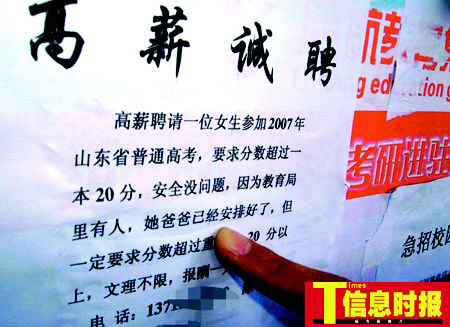 高薪诚聘
高薪聘请一位女生参加2007年
山东省普通高考，要求分数超过一
本20分，安全没问题，因为教育局
里有人，她爸爸已经安排好了，但
一定要求分数超过重 20分以
上，文理不限，报酬一
电话：137
g education g
考研进驻
急招校园
Times
信息时报